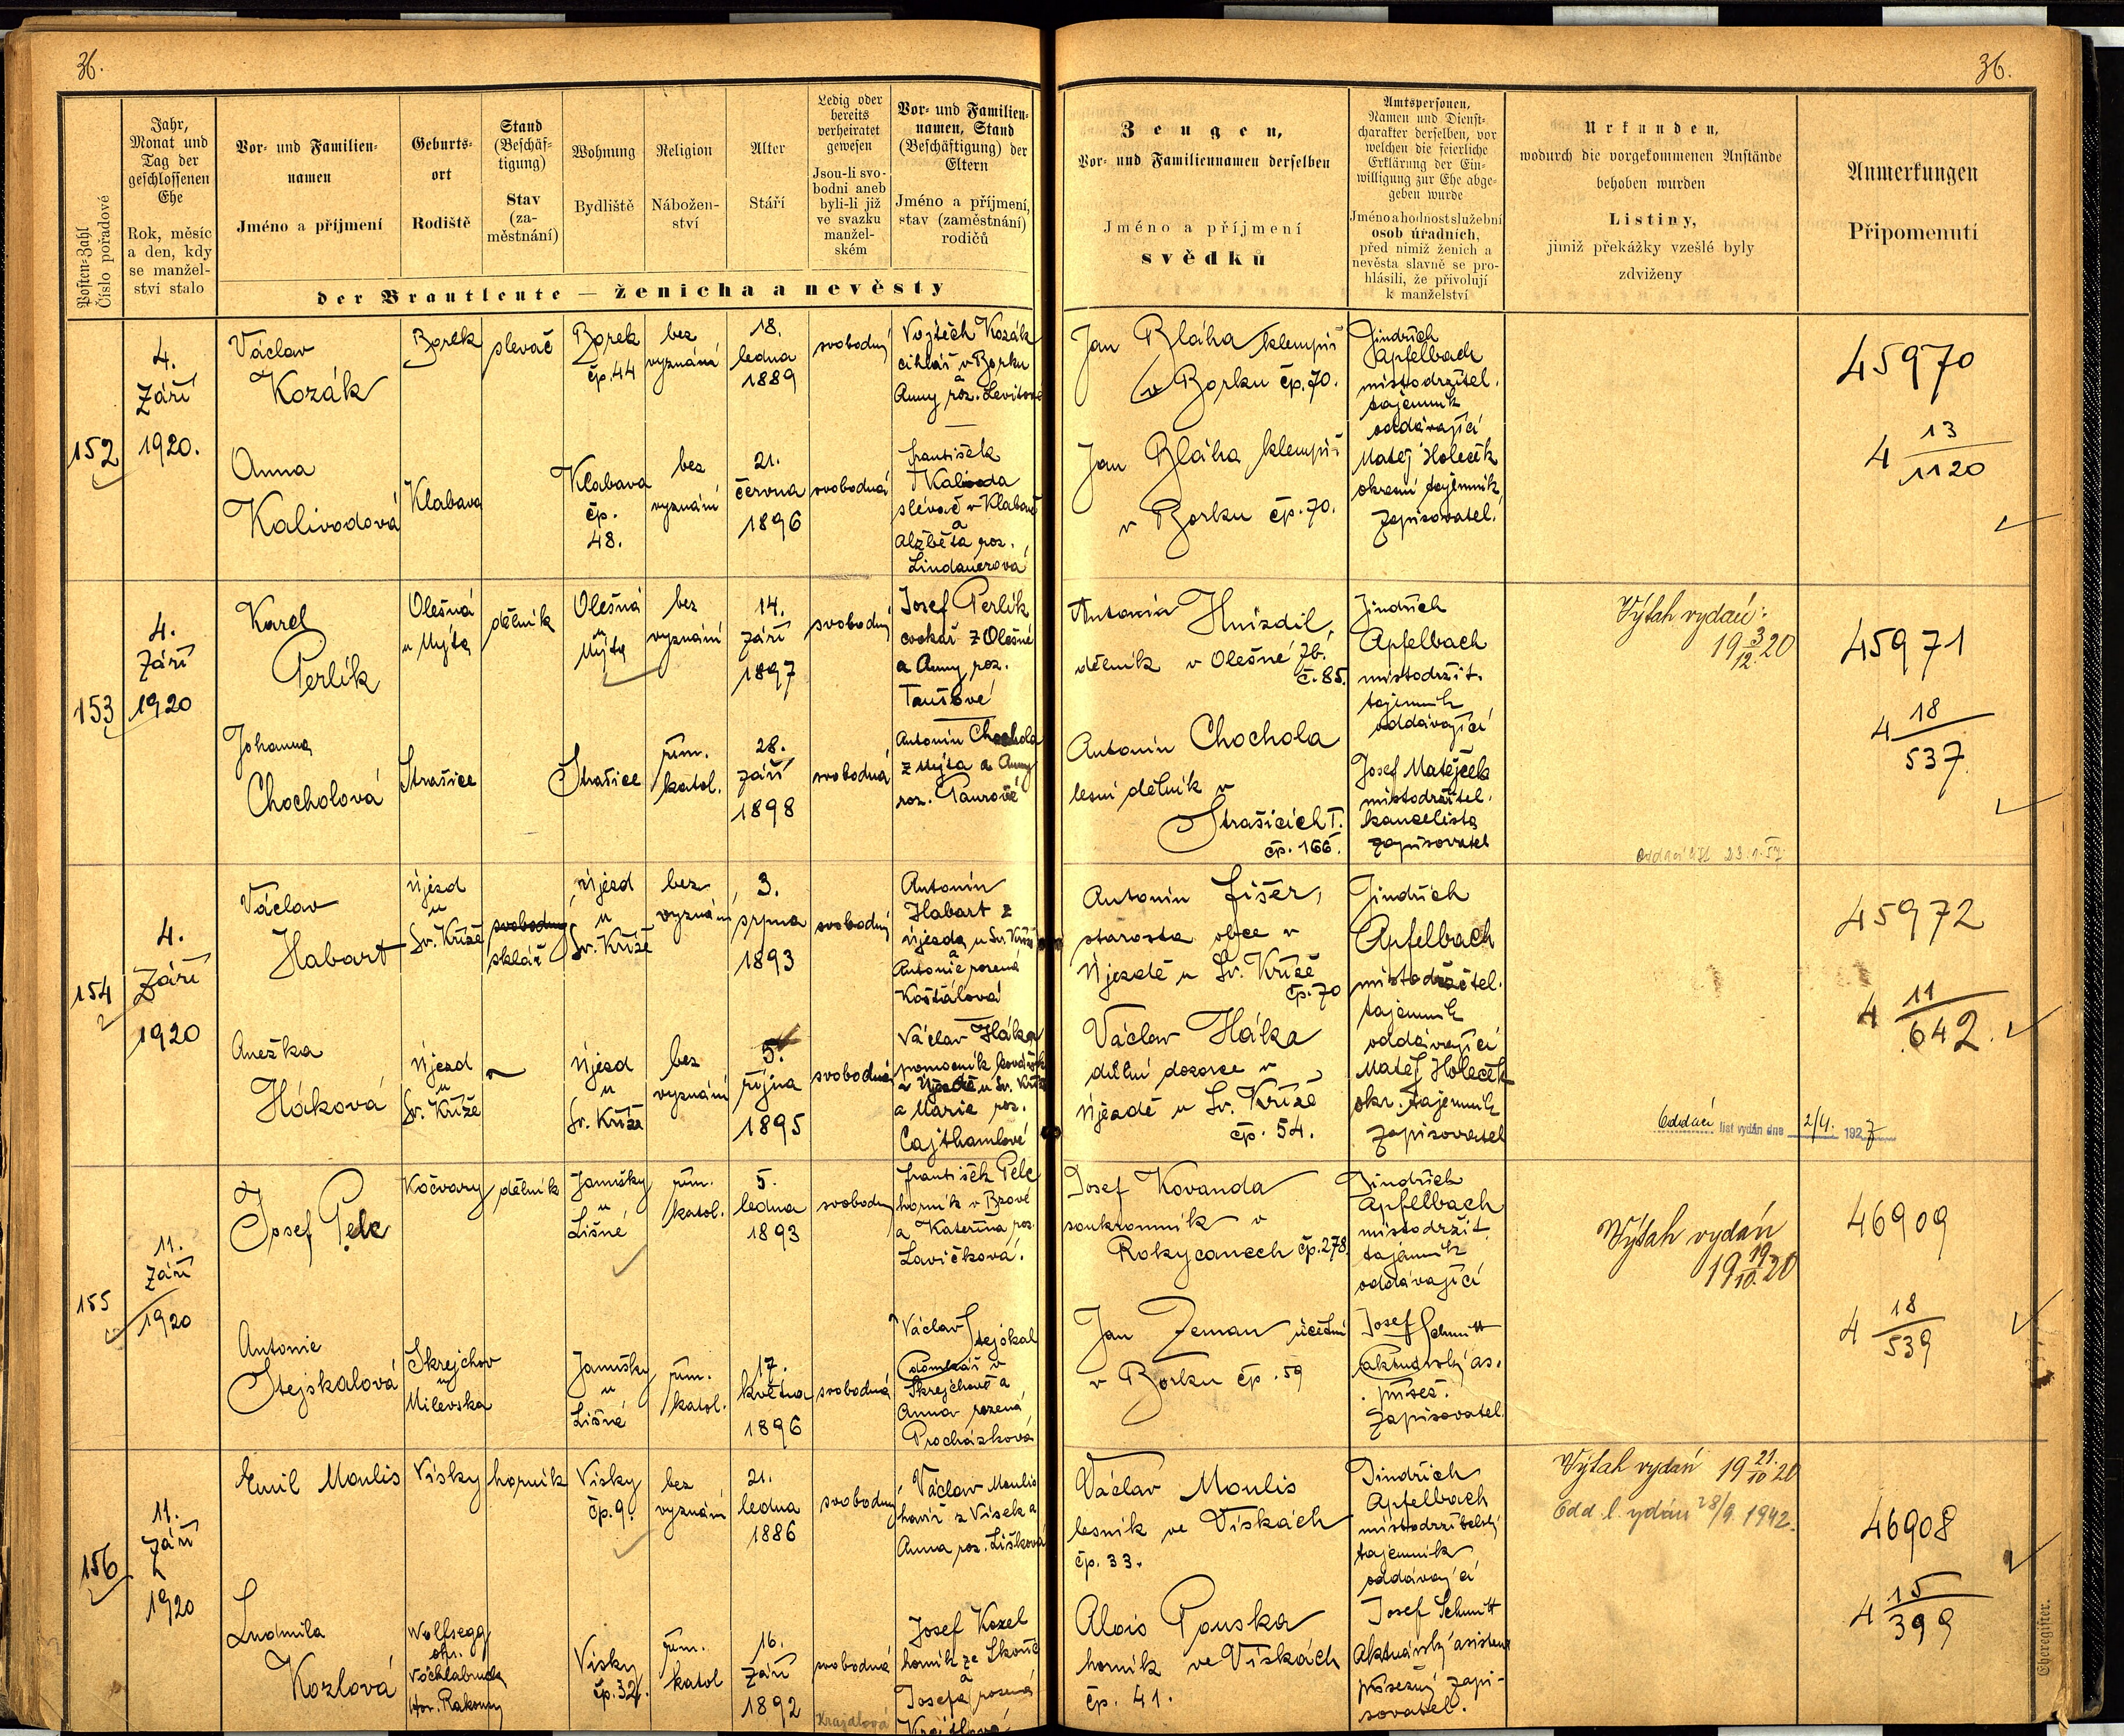 36.
36.
Posten-Zahl
Číslo pořadové
Jahr,
Monat und
Tag der
geschlossenen
Ehe
Rok, měsíc
a den, kdy
se manžel-
ství stalo
Vor- und Familien-
namen
Jméno a příjmení
Geburts-
ort
Rodiště
Stand
(Beschäf-
tigung)
Stav
(za-
městnání)
Wohnung
Bydliště
Religion
Nábožen-
ství
Alter
Stáří
Ledig oder
bereits
verheiratet
gewesen
Jsou-li svo-
bodni aneb
byli-li již
ve svazku
manžel-
ském
Vor- und Familien-
namen, Stand
(Beschäftigung) der
Eltern
Jméno a příjmení,
stav (zaměstnání)
rodičů
der Brautleute — ženicha a nevěsty
Zeugen,
Vor- und Familiennamen derselben
Jméno a příjmení
svědků
Amtspersonen,
Namen und Dienst-
charakter derselben, vor
welchen die feierliche
Erklärung der Ein-
willigung zur Ehe abge-
geben wurde
Jméno a hodnost služební
osob úřadních,
před nimiž ženich a
nevěsta slavně se pro-
hlásili, že přivolují
k manželství
Urkunden,
wodurch die vorgekommenen Anstände
behoben wurden
Listiny,
jimiž překážky vzešlé byly
zdviženy
Anmerkungen
Připomenutí
152
4.
Září
1920.
Václav
Kozák
Borek
slevač
Borek
čp. 44
bez
vyznání
18.
ledna
1889
svobodný
Vojtěch Kozák
cihlář v Borku
a
Anny roz. Levitové
Jan Bláha klempíř
v Borku čp. 70.
Jindřich
Apfelbach
místodržitel.
tajemník
oddávající
45970
Anna
Kalivodová
Klabava
Klabava
čp.
48.
bez
vyznání
21.
června
1896
svobodná
František
Kalivoda
slévač v Klabavě
a
Alžběta roz.
Lindauerová
Jan Bláha klempíř
v Borku čp. 70.
Matěj Holeček
okresní tajemník
zapisovatel.
4 13/1120
153
4.
Září
1920
Karel
Perlík
Olešná
u Mýta
dělník
Olešná
u
Mýta
bez
vyznání
14.
září
1897
svobodný
Josef Perlík
cvokař z Olešné
a Anny roz.
Taušové
Antonín Hnízdil,
dělník v Olešné
č. 85.
Jindřich
Apfelbach
místodržit.
tajemník
oddávající
Výtah vydán:
19 3/12 20
45971
Johanna
Chocholová
Strašice
Strašice
řím.
katol.
28.
září
1898
svobodná
Antonín Chochola
z Mýta a Anny
roz. Paurové
Antonín Chochola
lesní dělník v
Strašicích I.
čp. 166.
Josef Matějček
místodržitel.
kancelista
zapisovatel
4 18/537
154
4.
Září
1920
Václav
Habart
Újezd
u
Sv. Kříže
svobodný
sklář
Újezd
u
Sv. Kříže
bez
vyznání
3.
srpna
1893
svobodný
Antonín
Habart z
Újezda u Sv. Kříže
a
Antonie rozená
Košťálová
Antonín Fišer,
starosta obce v
Újezdě u Sv. Kříže
čp. 70
Jindřich
Apfelbach
místodržitel.
tajemník
oddávající
45972
Anežka
Háková
Újezd
u
Sv. Kříže
Újezd
u
Sv. Kříže
bez
vyznání
5.
října
1895
svobodná
Václav Háka
pomocník
v Újezdě u Sv. Kříže
a Marie roz.
Cajthamlové
Václav Háka
důlní dozorce v
Újezdě u Sv. Kříže
čp. 54.
Matěj Holeček
okr. tajemník
zapisovatel
Oddací list vydán dne 2/4. 1927
4 11/642.
155
11.
Září
1920
Josef Pelc
Kočvary
dělník
Janušky
u
Lišné
řím.
katol.
5.
ledna
1893
svobodný
František Pelc
horník v Bzové
a Kateřina roz.
Lavičková.
Josef Kovanda
soukromník v
Rokycanech čp. 278.
Jindřich
Apfelbach
místodržit.
tajemník
oddávající
Výtah vydán
19 19/10 20
46909
Antonie
Stejskalová
Skrejchov
u
Milevska
Janušky
u
Lišné
řím.
katol.
17.
května
1896
svobodná
Václav Stejskal
domkář v
Skrejchově a
Anna rozená
Procházková
Jan Zeman účetní
v Borku čp. 59
Josef Schmitt
aktuárský as.
přísež.
zapisovatel.
4 18/539
156
11.
Září
1920
Emil Moulis
Vísky
horník
Vísky
čp. 9.
bez
vyznání
21.
ledna
1886
svobodný
Václav Moulis
havíř z Vísek a
Anna roz. Lišková
Václav Moulis
lesník ve Vískách
čp. 33.
Jindřich
Apfelbach
místodržitelský
tajemník
oddávající
Výtah vydán 19 21./10 20
Odd. l. vydán 28/9. 1942.
46908
Ludmila
Kozlová
Wolfsegg
okr.
Vöcklabruck
Hor. Rakousy
Vísky
čp. 32.
řím.
katol
16.
září
1892
svobodná
Josef Kozel
horník ze Skořic
a
Josefa rozená
Krajdlová
Alois Pouska
horník ve Vískách
čp. 41.
Josef Schmitt
Aktuárský asistent
přísežný zapi-
sovatel.
4 15/399
Krajdlová
Eheregister.